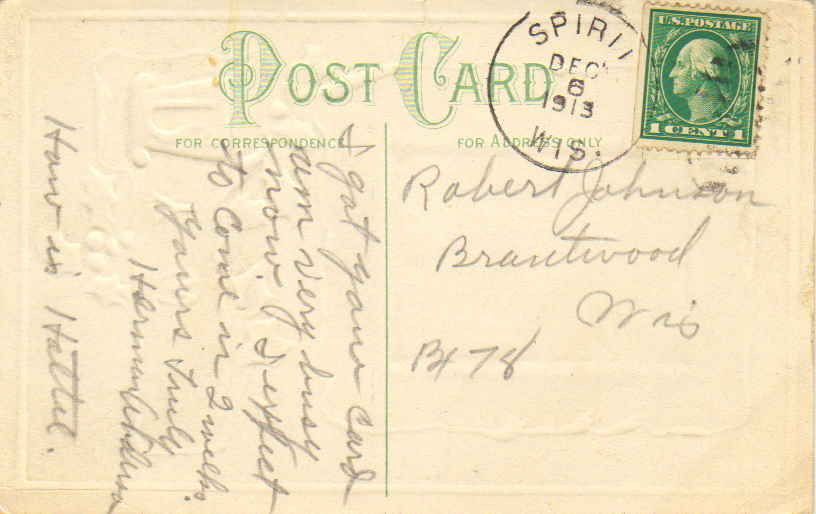 POST CARD
FOR CORRESPONDENCE
FOR ADDRESS ONLY
SPIRIT
DEC
6
1913
WIS.
U.S. POSTAGE
1 CENT 1
I got your card
am very busy
now. I expect
to come in 2 weeks.
Yours Truly
Herman
How is Hattie.
Robert Johnson
Brantwood
Wis
Bx 78